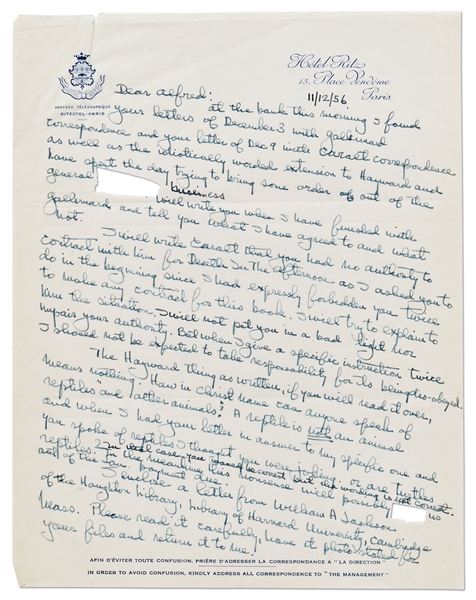 Hôtel Ritz
15, Place Vendôme
Paris
ADRESSE TÉLÉGRAPHIQUE
RITZOTEL-PARIS
11/12/56
Dear Alfred:
at the bank this morning I found
your letters of December 3 with Gallimard
correspondence and your letter of Dec 9 with correspondence
as well as the idiotically worded extension to Hayward and
have spent the day trying to bring some order out of the
general business
Will write you when I have finished with
Gallimard and tell you what I have agreed to and what
not.
I will write that you had no authority to
contract with him for Death In The Afternoon as I asked you to
do in the beginning since I had expressly forbidden you twice
to make any contract for this book. I will try to explain to
him the situation. I will not put you in a bad light nor
impair your authority. But when I give a specific instruction twice
I should not be expected to take responsibility for its being dis-obeyed.
The Hayward thing as written, if you will read it over,
means nothing. How in Christ name can anyone speak of
reptiles "and other animals"? A reptile is not an animal
and when I had your letter in answer to my specific one and
you spoke of reptiles I thought you were joking or are turtles
reptiles? In that case, you could be correct but the wording is not correct.
In the meantime this nonsense will possibly us
out of the payment due.
I enclose a letter from William A Jackson
of the Houghton Library, Library of Harvard University, Cambridge
Mass. Please read it carefully, have it photo-stated for
your files and return it to me.
AFIN D'ÉVITER TOUTE CONFUSION, PRIÈRE D'ADRESSER LA CORRESPONDANCE A "LA DIRECTION"
IN ORDER TO AVOID CONFUSION, KINDLY ADDRESS ALL CORRESPONDENCE TO "THE MANAGEMENT"